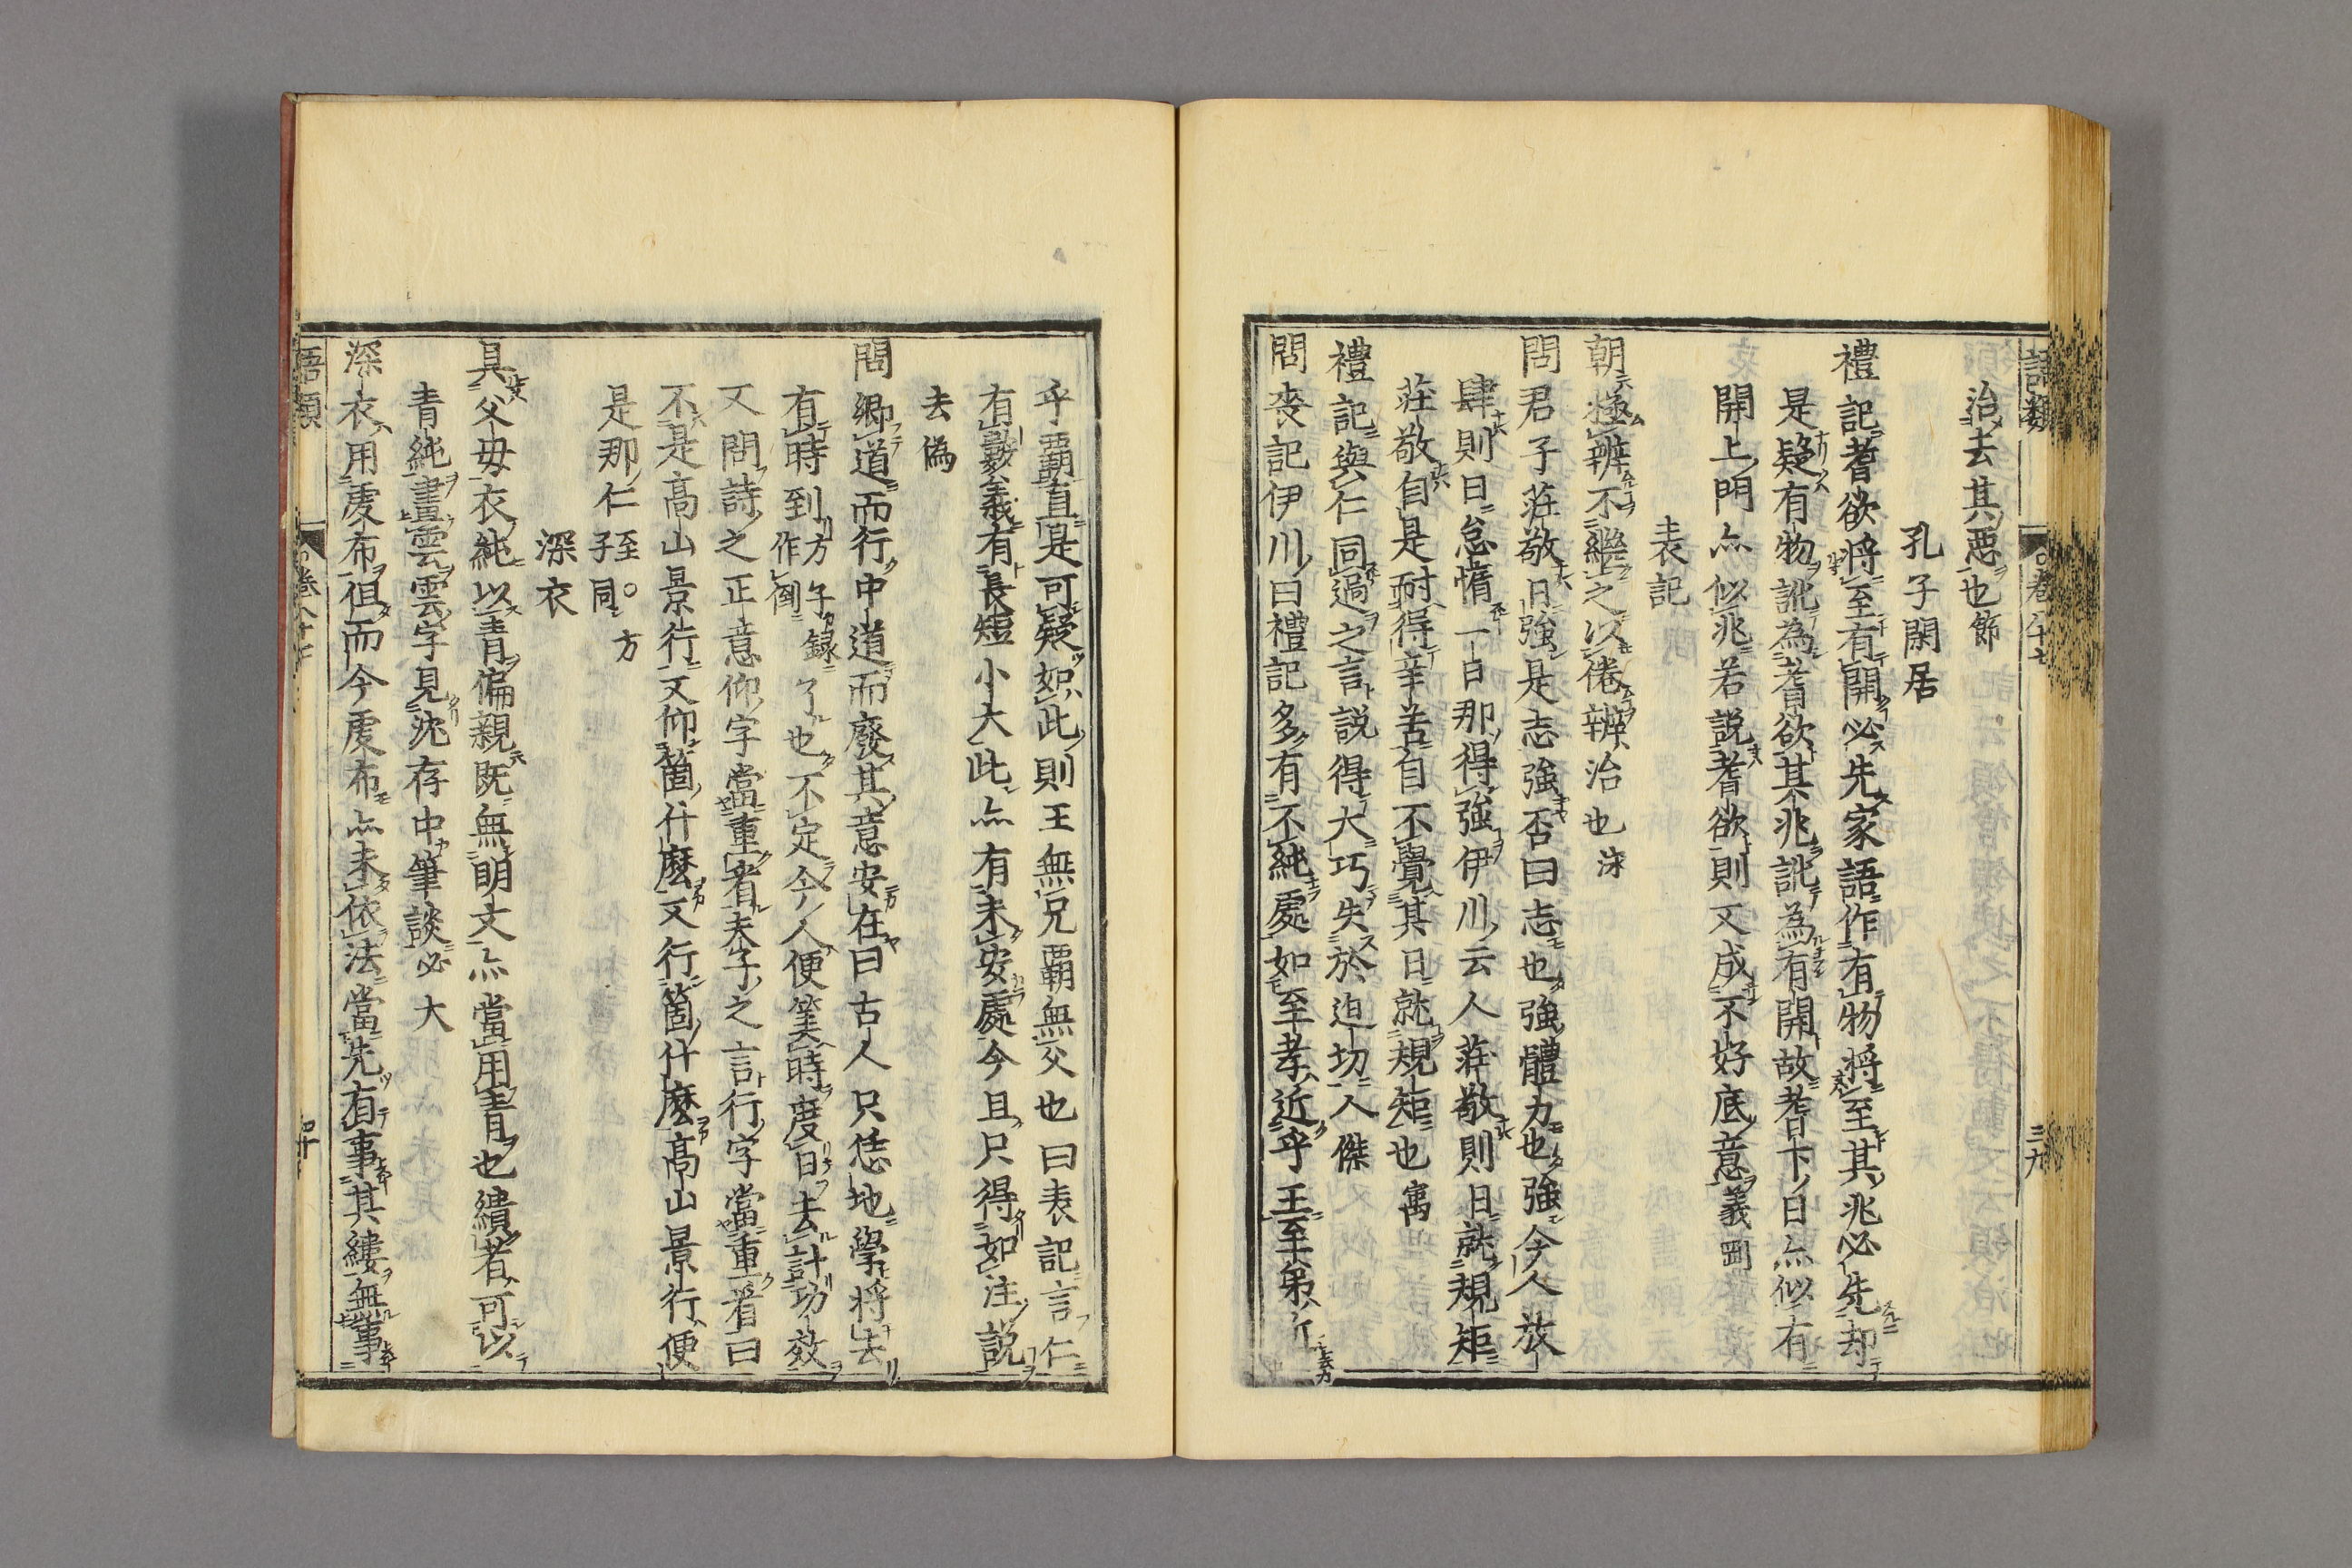 語類 卷八十七 三九
治去其惡也節
孔子閑居
禮記耆欲將至有開必先家語作有物將至其兆必先却
是疑有物訛為耆欲其兆訛為有開故耆下日亦似有
開上門亦似兆若說耆欲則又成不好底意義剛
表記
朝極辨不繼之以倦辨治也泳
問君子莊敬日強是志強否曰志也強體力也強今人放
肆則日怠惰一日那得強伊川云人莊敬則日就規矩
莊敬自是耐得辛苦自不覺其日就規矩也㝢
禮記與仁同過之言說得大巧失於迫切人傑
問表記伊川曰禮記多有不純處如至孝近乎王至弟近
乎覇直是可疑如此則王無兄覇無父也曰表記言仁
有數義有長短小大此亦有未安處今且只得如注說
去偽
問鄉道而行中道而廢其意安在曰古人只恁地學將去
有時到方子録作倒了也不定今人便筭時度日去計功效
又問詩之正意仰字當重看夫子之言行字當重看曰
不是高山景行又仰箇什麼又行箇什麼高山景行便
是那仁至。方子同
深衣
具父母衣純以青偏親既無明文亦當用青也繢者可以
青純畫雲雲字見沈存中筆談必大
深衣用虔布但而今虔布亦未依法當先有事其縷無事
語類 卷八十七 四十